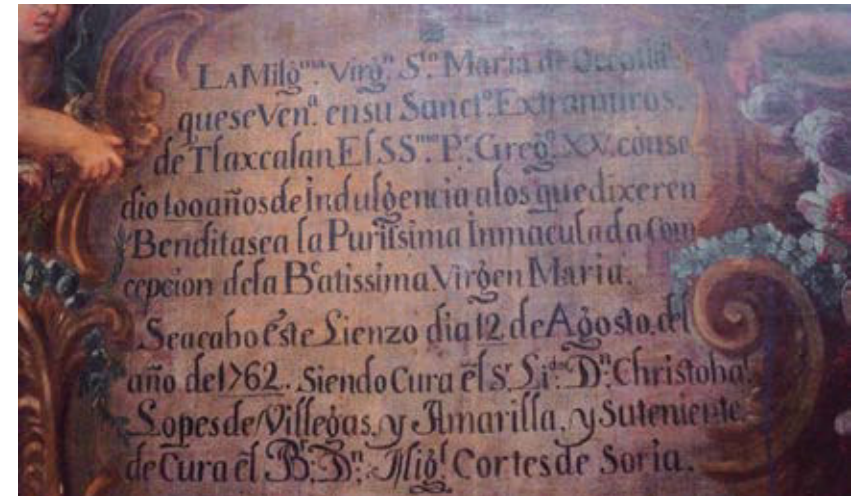 LA Milg.ma Virg.n S.ta Maria de Ocotlã
que se Ven.a en su Sanct.o Extramuros.
de Tlaxcalan El SS.mo P.e Greg.o XV. conse
dio 100 años de Indulgencia a los que dixeren
Bendita sea la Purissima Inmaculada Com
cepcion de la Beatissima Virgen Maria.
Se acabo este Lienzo dia 12 de Agosto. del
año de 1762. Siendo Cura el S.r Li.do D.n Christobal
Lopes de Villegas, y Amarilla, y Su teniente
de Cura el B.r D.n Mig.l Cortes de Soria.